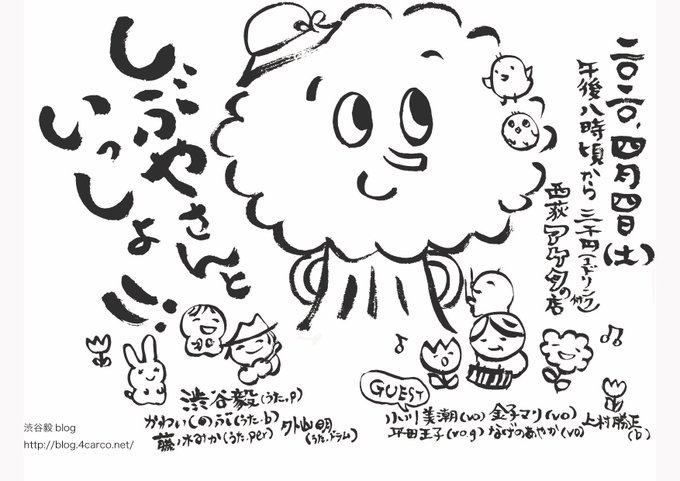 二〇二〇.四月四日(土)
午後八時頃から 三千円(1ドリンク付)
西荻アケタの店
しぶやさんと
いっしょに
渋谷毅(うた.p)
かわいしのぶ(うた.b)
外山明(うた.ドラム)
藤ノ木みか(うた.per)
GUEST
小川美潮(vo) 金子マリ(vo)
平田王子(vo.g) なげのあやか(vo)
上村勝正(b)
渋谷毅 blog
http://blog.4carco.net/